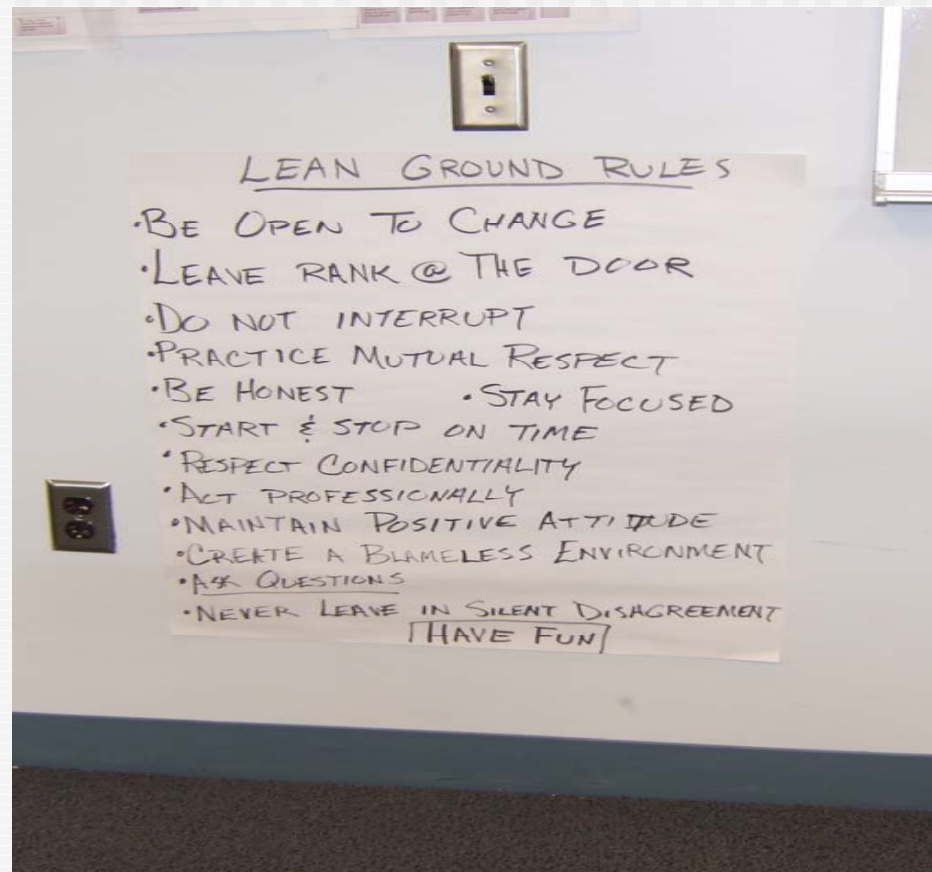 LEAN GROUND RULES
•BE OPEN TO CHANGE
•LEAVE RANK @ THE DOOR
•DO NOT INTERRUPT
•PRACTICE MUTUAL RESPECT
•BE HONEST •STAY FOCUSED
•START & STOP ON TIME
•RESPECT CONFIDENTIALITY
•ACT PROFESSIONALLY
•MAINTAIN POSITIVE ATTITUDE
•CREATE A BLAMELESS ENVIRONMENT
•ASK QUESTIONS
•NEVER LEAVE IN SILENT DISAGREEMENT
HAVE FUN